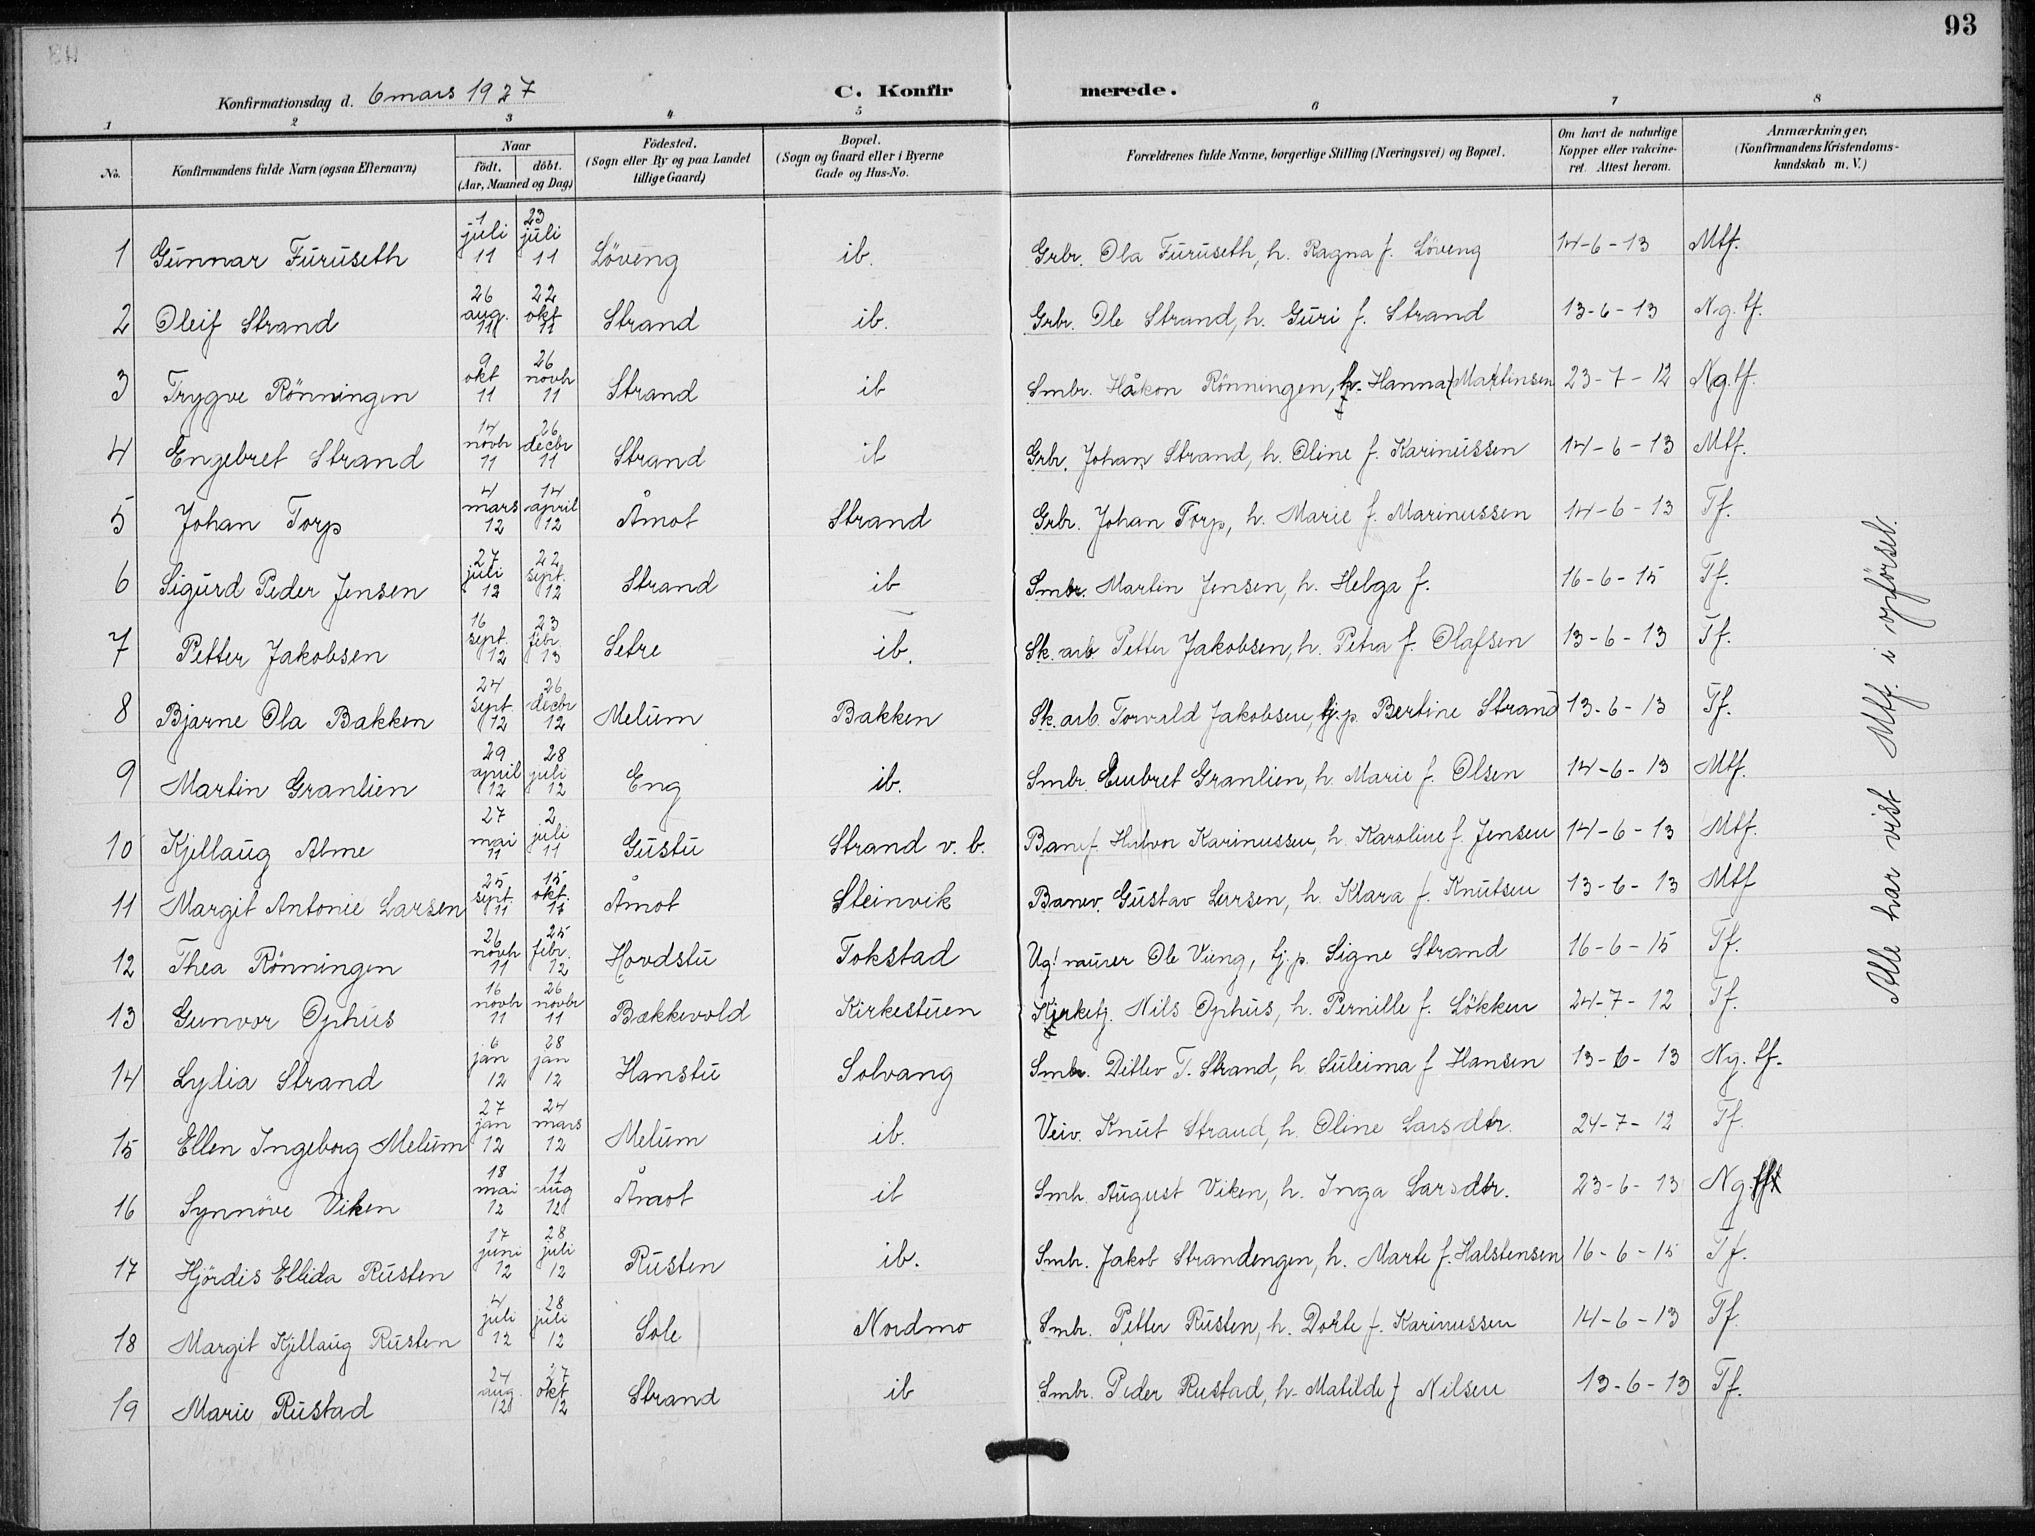 93
Konfirmationsdag d. 6 mars 1927
C. Konfirmerede.
1 2 3 4 5 6 7 8
No. | Konfirmandens fulde Navn (ogsaa Efternavn) | Naar født. døbt. (Aar, Maaned og Dag) | Födested. (Sogn eller By og paa Landet tillige Gaard) | Bopæl. (Sogn og Gaard eller i Byerne Gade og Hus-No. | Forældrenes fulde Navne, borgerlige Stilling (Næringsvei) og Bopæl. | Om havt de naturlige Kopper eller vakcineret. Attest herom. | Anmærkninger, (Konfirmandens Kristendomskundskab m. V.)
1 Gunnar Furuseth | 1 juli 11 | 23 juli 11 | Löveng | ib. | Grbr. Ola Furuseth, h. Ragna f. Löveng | 14-6-13 | Mtf.
2 Oleif Strand | 26 aug. 11 | 22 okt 11 | Strand | ib. | Grbr. Ole Strand, h. Guri f. Strand | 13-6-13 | N.g. tf.
3 Trygve Rönningen | 9 okt 11 | 26 novbr 11 | Strand | ib | Smbr. Håkon Rönningen, h. Hanna f Martinsen | 23-7-12 | Ng. tf.
4 Engebret Strand | 14 novbr 11 | 26 decbr 11 | Strand | ib | Grbr. Johan Strand, h. Oline f. Karinussen | 14-6-13 | Mtf.
5 Johan Torp | 4 mars 12 | 14 april 12 | Åmot | Strand | Grbr. Johan Torp, h. Marie f. Marinussen | 14-6-13 | Tf.
6 Sigurd Peder Jensen | 27 juli 12 | 22 sept. 12 | Strand | ib | Smbr. Martin Jensen, h. Helga f. | 16-6-15 | Tf.
7 Petter Jakobsen | 16 sept. 12 | 23 febr. 13 | Setre | ib. | Sk. arb. Petter Jakobsen, h. Petra f. Olafsen | 13-6-13 | Tf.
8 Bjarne Ola Bakken | 24 sept. 12 | 26 decbr 12 | Melum | Bakken | Sk. arb. Torvald Jakobsen, tj.p. Bertine Strand | 13-6-13 | Tf.
9 Martin Granlien | 29 april 12 | 28 juli 12 | Eng | ib. | Smbr. Embret Granlien, h. Marie f. Olsen | 14-6-13 | Mtf.
10 Kjellaug Alme | 27 mai 11 | 2 juli 11 | Gustu | Strand v. b. | Banef. Halvor Karinussen, h. Karoline f. Jensen | 14-6-13 | Mtf.
11 Margit Antonie Larsen | 25 sept. 11 | 15 okt. 11 | Åmot | Steinvik | Banev. Gustav Larsen, h. Klara f. Knutsen | 13-6-13 | Mtf
12 Thea Rönningen | 26 novbr 11 | 25 febr. 12 | Hovdstu | Tokstad | Ug. maurer Ole Vung, tj. p. Signe Strand | 16-6-15 | Tf.
13 Gunvor Ophus | 16 novbr 11 | 26 novbr 11 | Bækkevold | Kirkestuen | Kirketj. Nils Ophus, h. Pernille f. Lökken | 24-7-12 | Tf.
14 Lylia Strand | 6 jan 12 | 28 jan 12 | Hanstu | Solvang | Smbr. Ditlev T. Strand, h. Suleima f Hansen | 13-6-13 | Ng. tf.
15 Ellen Ingeborg Melum | 27 jan 12 | 24 mars 12 | Melum | ib. | Veiv. Knut Strand, h. Oline Larsdtr. | 24-7-12 | Tf.
16 Synnöve Viken | 18 mai 12 | 11 aug 12 | Åmot | ib | Smb. August Viken, h. Inga Larsdtr. | 23-6-13 | Ng. tf
17 Hjördis Ellida Rusten | 17 juni 12 | 28 juli 12 | Rusten | ib. | Smbr. Jakob Strandengen, h. Marte f. Halstensen | 16-6-15 | Tf.
18 Margit Kjellaug Rusten | 4 juli 12 | 28 juli 12 | Sole | Nordmo | Smbr. Petter Rusten, h. Dorte f. Karinussen | 14-6-13 | Tf.
19 Marie Rustad | 24 aug. 12 | 27 okt 12 | Strand | ib | Smbr. Peder Rustad, h. Matilde f Nilsen | 13-6-13 | Tf.
Alle har vist Mtf. i opförsel.